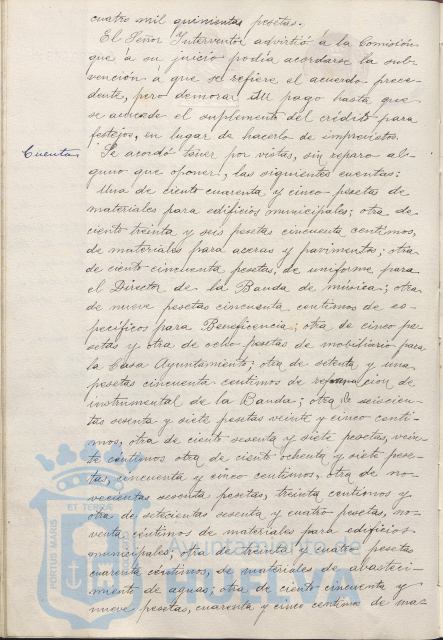 cuatro mil quinientas pesetas.
El Señor Interventor advirtió á la Comisión
que á su juicio podía acordarse la sub-
vención á que se refiere el acuerdo prece-
dente, pero demorar su pago hasta que
se acuerde el suplemento del crédito para
festejos, en lugar de hacerlo de imprevistos.
Cuentas
Se acordó tener por vistas, sin reparo al-
guno que oponer, las siguientes cuentas:
Una de ciento cuarenta y cinco pesetas de
materiales para edificios municipales; otra de
ciento treinta y seis pesetas cincuenta centimos,
de materiales para aceras y pavimentos; otra
de ciento cincuenta pesetas, de uniforme para
el Director de la Banda de música; otra
de nueve pesetas cincuenta centimos de es-
pecíficos para Beneficencia; otra de cinco pe-
setas y otra de ocho pesetas de mobiliario para
la Casa Ayuntamiento; otra de setenta y una
pesetas cincuenta centimos de reparacion de
instrumental de la Banda; otra de seiscien-
tas sesenta y siete pesetas veinte y cinco centi-
mos, otra de ciento sesenta y siete pesetas, vein-
te céntimos otra de ciento ochenta y siete pese-
tas, cincuenta y cinco centimos, otra de no-
vecientas sesenta pesetas, treinta centimos y
otra de setecientas sesenta y cuatro pesetas, no-
venta céntimos de materiales para edificios
municipales; otra de treinta y cuatro pesetas
cuarenta céntimos, de materiales de abasteci-
miento de aguas; otra de ciento cincuenta y
nueve pesetas, cuarenta y cinco centimos de ma-
PORTUS MARIS ET TERRAE
Ayuntamiento de
HUELVA